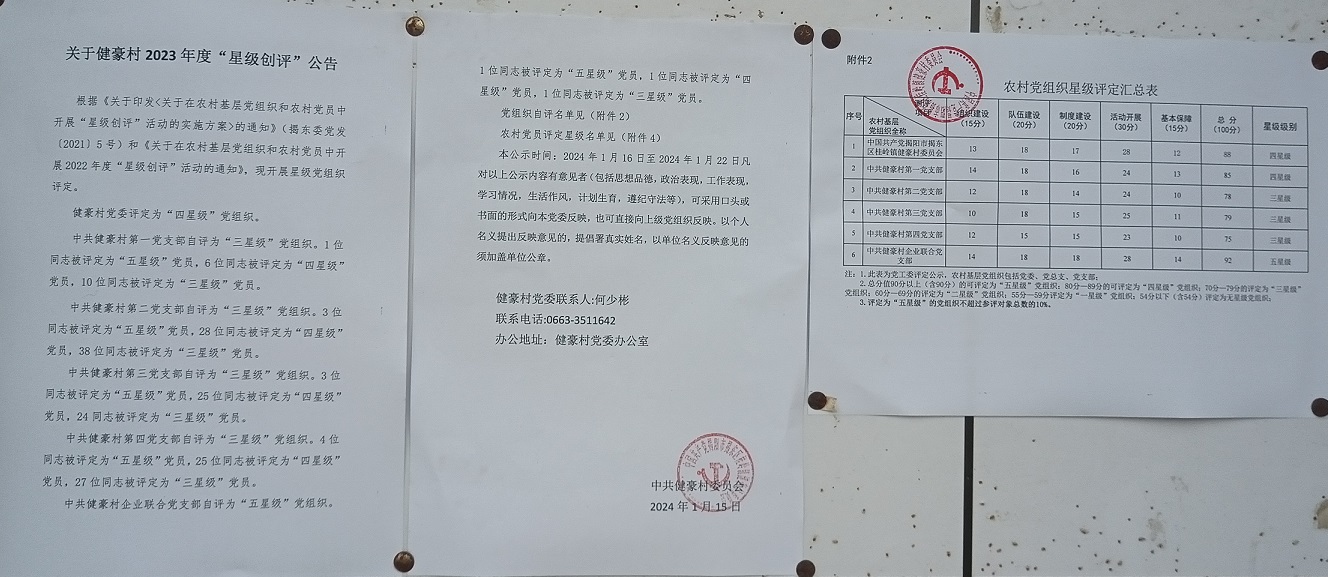 关于健豪村 2023 年度“星级创评”公告
根据《关于印发<关于在农村基层党组织和农村党员中
开展“星级创评”活动的实施方案>的通知》（揭东委党发
〔2021〕5 号）和《关于在农村基层党组织和农村党员中开
展2022 年度“星级创评”活动的通知》，现开展星级党组织
评定。
健豪村党委评定为“四星级”党组织。
中共健豪村第一党支部自评为“三星级”党组织。1 位
同志被评定为“五星级”党员，6 位同志被评定为“四星级”
党员，10 位同志被评定为“三星级”党员。
中共健豪村第二党支部自评为“三星级”党组织。3 位
同志被评定为“五星级”党员，28 位同志被评定为“四星级”
党员，38 位同志被评定为“三星级”党员。
中共健豪村第三党支部自评为“三星级”党组织。3 位
同志被评定为“五星级”党员，25 位同志被评定为“四星级”
党员，24 同志被评定为“三星级”党员。
中共健豪村第四党支部自评为“三星级”党组织。4 位
同志被评定为“五星级”党员，25 位同志被评定为“四星级”
党员，27 位同志被评定为“三星级”党员。
中共健豪村企业联合党支部自评为“五星级”党组织。
1 位同志被评定为“五星级”党员，1 位同志被评定为“四
星级”党员，1 位同志被评定为“三星级”党员。
党组织自评名单见（附件 2）
农村党员评定星级名单见（附件 4）
本公示时间：2024 年 1 月 16 日至 2024 年 1 月 22 日凡
对以上公示内容有意见者（包括思想品德，政治表现，工作表现，
学习情况，生活作风，计划生育，遵纪守法等），可采用口头或
书面的形式向本党委反映，也可直接向上级党组织反映。以个人
名义提出反映意见的，提倡署真实姓名，以单位名义反映意见的
须加盖单位公章。
健豪村党委联系人:何少彬
联系电话:0663-3511642
办公地址：健豪村党委办公室
中共健豪村委员会
2024 年 1 月 15 日
附件2
农村党组织星级评定汇总表
序号 项目 农村基层党组织全称 组织建设（15分） 队伍建设（20分） 制度建设（20分） 活动开展（30分） 基本保障（15分） 总 分（100分） 星级级别
1 中国共产党揭阳市揭东区桂岭镇健豪村委员会 13 18 17 28 12 88 四星级
2 中共健豪村第一党支部 14 18 16 24 13 85 四星级
3 中共健豪村第二党支部 12 18 14 24 10 78 三星级
4 中共健豪村第三党支部 10 18 15 25 11 79 三星级
5 中共健豪村第四党支部 12 15 15 23 10 75 三星级
6 中共健豪村企业联合党支部 14 18 18 28 14 92 五星级
注：1.此表为党工委评定公示，农村基层党组织包括党委、党总支、党支部；
2.总分值90分以上（含90分）的可评定为“五星级”党组织；80分—89分的可评定为“四星级”党组织；70分—79分的评定为“三星级”
党组织；60分—69分的评定为“二星级”党组织；55分—59分评定为“一星级”党组织；54分以下（含54分）评定为无星级党组织；
3.评定为“五星级”的党组织不超过参评对象总数的10%。